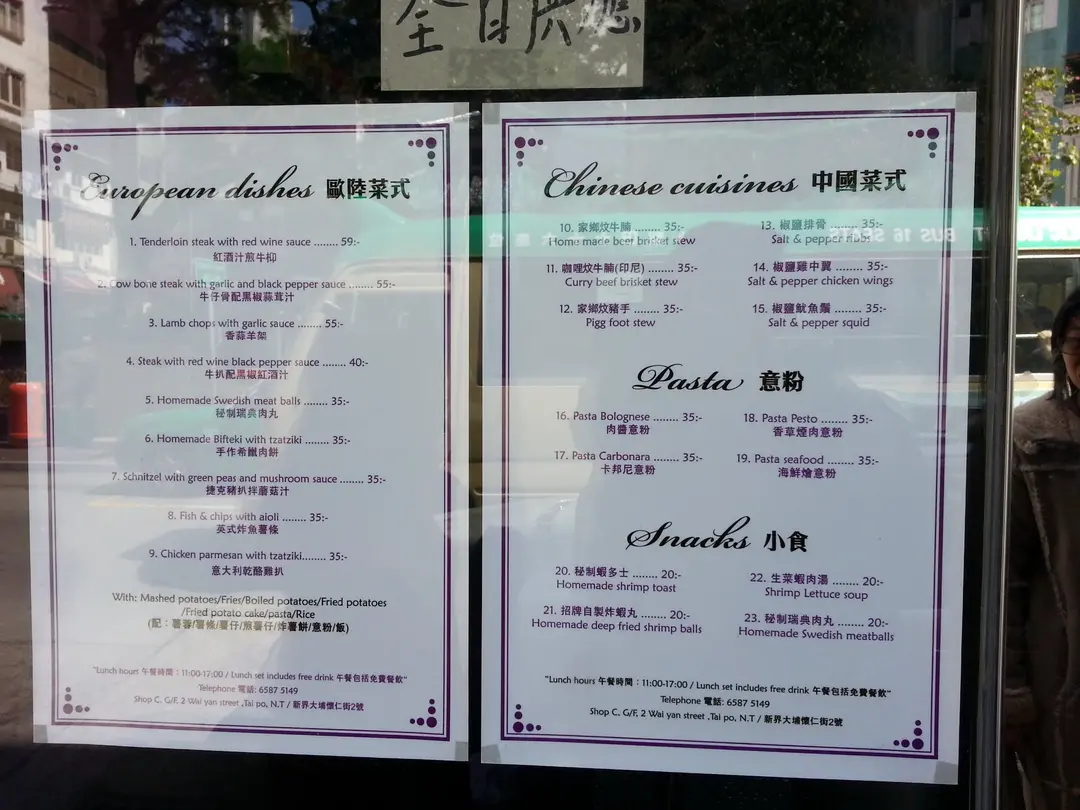 全日供應
European dishes 歐陸菜式
1. Tenderloin steak with red wine sauce ........ 59:-
紅酒汁煎牛抑
2. Cow bone steak with garlic and black pepper sauce ........ 55:-
牛仔骨配黑椒蒜茸汁
3. Lamb chops with garlic sauce ........ 55:-
香蒜羊架
4. Steak with red wine black pepper sauce ........ 40:-
牛扒配黑椒紅酒汁
5. Homemade Swedish meat balls ........ 35:-
秘制瑞典肉丸
6. Homemade Bifteki with tzatziki ........ 35:-
手作希臘肉餅
7. Schnitzel with green peas and mushroom sauce ........ 35:-
捷克豬扒拌蘑菇汁
8. Fish & chips with aioli ........ 35:-
英式炸魚薯條
9. Chicken parmesan with tzatziki........ 35:-
意大利乾酪雞扒
With: Mashed potatoes/Fries/Boiled potatoes/Fried potatoes
/Fried potato cake/pasta/Rice
(配：薯蓉/薯條/薯仔/煎薯仔/炸薯餅/意粉/飯)
"Lunch hours 午餐時間：11:00-17:00 / Lunch set includes free drink 午餐包括免費餐飲"
Telephone 電話: 6587 5149
Shop C, G/F, 2 Wai yan street ,Tai po, N.T / 新界大埔懷仁街2號
Chinese cuisines 中國菜式
10. 家鄉炆牛腩 ........ 35:-
Home made beef brisket stew
11. 咖哩炆牛腩(印尼) ........ 35:-
Curry beef brisket stew
12. 家鄉炆豬手 ........ 35:-
Pigg foot stew
13. 椒鹽排骨 ........ 35:-
Salt & pepper ribs
14. 椒鹽雞中翼 ........ 35:-
Salt & pepper chicken wings
15. 椒鹽魷魚鬚 ........ 35:-
Salt & pepper squid
Pasta 意粉
16. Pasta Bolognese ........ 35:-
肉醬意粉
17. Pasta Carbonara ........ 35:-
卡邦尼意粉
18. Pasta Pesto ........ 35:-
香草煙肉意粉
19. Pasta seafood ........ 35:-
海鮮燴意粉
Snacks 小食
20. 秘制蝦多士 ........ 20:-
Homemade shrimp toast
21. 招牌自製炸蝦丸 ........ 20:-
Homemade deep fried shrimp balls
22. 生菜蝦肉湯 ........ 20:-
Shrimp Lettuce soup
23. 秘制瑞典肉丸 ........ 20:-
Homemade Swedish meatballs
"Lunch hours 午餐時間：11:00-17:00 / Lunch set includes free drink 午餐包括免費餐飲"
Telephone 電話: 6587 5149
Shop C, G/F, 2 Wai yan street ,Tai po, N.T / 新界大埔懷仁街2號
BUS 16 SEATS